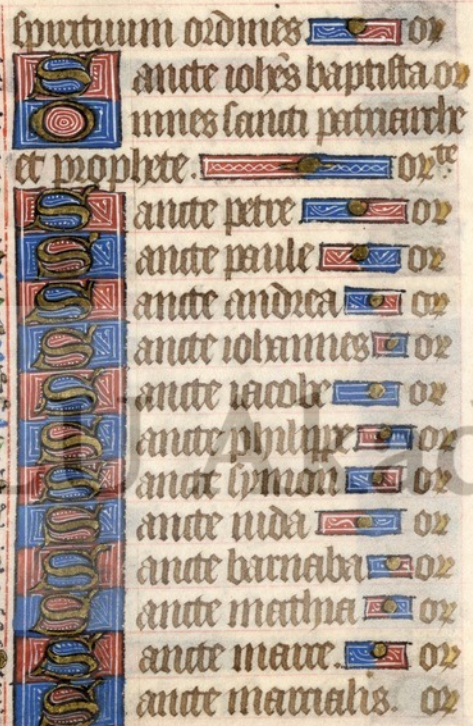 spirituum ordines or
Sancte ioh̄es baptista or
Omnes sancti patriarche
et prophete. orᵗᵉ
Sancte petre or
Sancte paule or
Sancte andrea or
Sancte iohannes or
Sancte iacobe or
Sancte philippe or
Sancte symon or
Sancte iuda or
Sancte barnaba or
Sancte mathia or
Sancte marce. or
Sancte marcialis. or